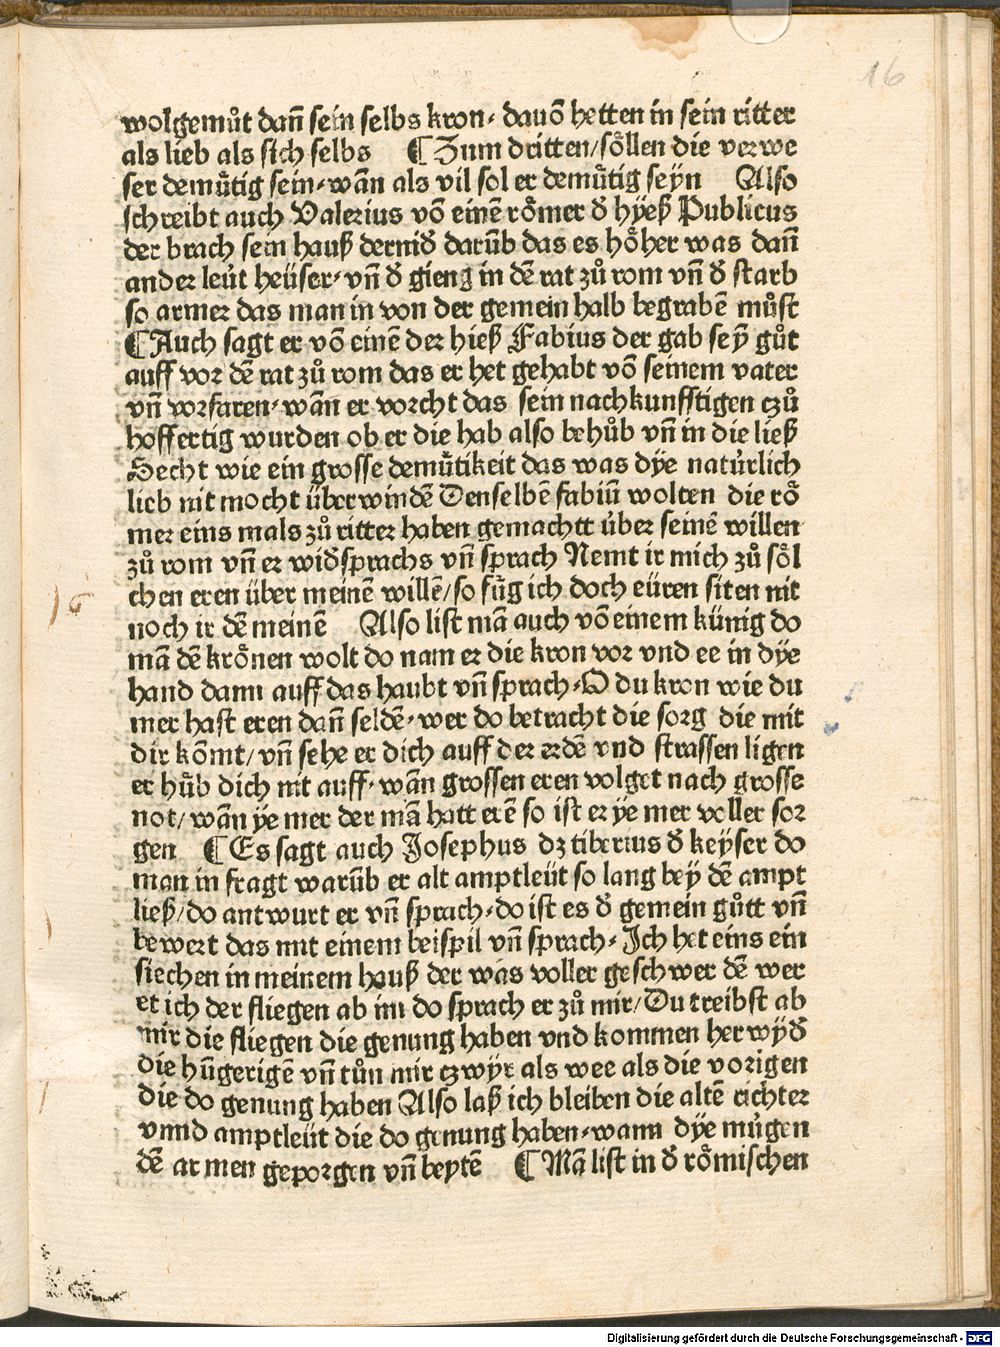 16
wolgemůt dañ sein selbs kron⸗ dauō hetten in sein ritter
als lieb als sich selbs ¶ Zum dritten/ söllen die verwe
ser demütig sein⸗ wān als vil sol er demütig seyn Also
schreibt auch Valerius vō einē römer d̄ hÿeß Publicus
der brach sein hauß dernid̄ darūb das es höher was dañ
ander leüt heüser⸗ vn̄ d̄ gieng in dē rat zů rom vn̄ d̄ starb
so armer das man in von der gemein halb begrabē můst
¶ Auch sagt er vō einē der hieß Fabius der gab seÿ gůt
auff vor dē rat zů rom das er het gehabt vō seinem vater
vn̄ vorfaren⸗ wān er vorcht das sein nachkunfftigen czů
hoffertig wurden ob er die hab also behůb vn̄ in die ließ
Secht wie ein grosse demütikeit das was dÿe natürlich
lieb nit mocht überwindē Denselbē fabiū wolten die rö
mer eins mals zů ritter haben gemachtt über seinē willen
zů rom vn̄ er wid̄sprachs vn̄ sprach Nemt ir mich zů söl
chen eren über meinē willē/ so füg ich doch eüren siten nit
noch ir dē meinē Also list mā auch vō einem künig do
mā dē krönen wolt do nam er die kron vor vnd ee in dÿe
hand dann auff das haubt vn̄ sprach⸗ O du kron wie du
mer hast eren dañ seldē⸗ wer do betracht die sorg die mit
dir kōmt/ vn̄ sehe er dich auff der erdē vnd strassen ligen
er hüb dich nit auff⸗ wān grossen eren volget nach grosse
not/ wān ÿe mer der mā hatt erē so ist er ÿe mer voller sor
gen ¶ Es sagt auch Josephus dz tiberius d̄ keÿser do
man in fragt warūb er alt amptleüt so lang beÿ dē ampt
ließ/ do antwurt er vn̄ sprach⸗ do ist es d̄ gemein gůtt vn̄
bewert das mit einem beispil vn̄ sprach⸗ Ich het eins ein
siechen in meinem hauß der was voller geschwer dē wer
et ich der fliegen ab im do sprach er zů mir/ Du treibst ab
mir die fliegen die genung haben vnd kommen herwÿd̄
die hūgerigē vn̄ tůn mir czwÿr als wee als die vorigen
die do genung haben Also laß ich bleiben die altē richter
vnnd amptleüt die do genung haben⸗ wann dÿe mügen
dē armen geporgen vn̄ beytē ¶ Mā list in d̄ römischen
Digitalisierung gefördert durch die Deutsche Forschungsgemeinschaft - DFG